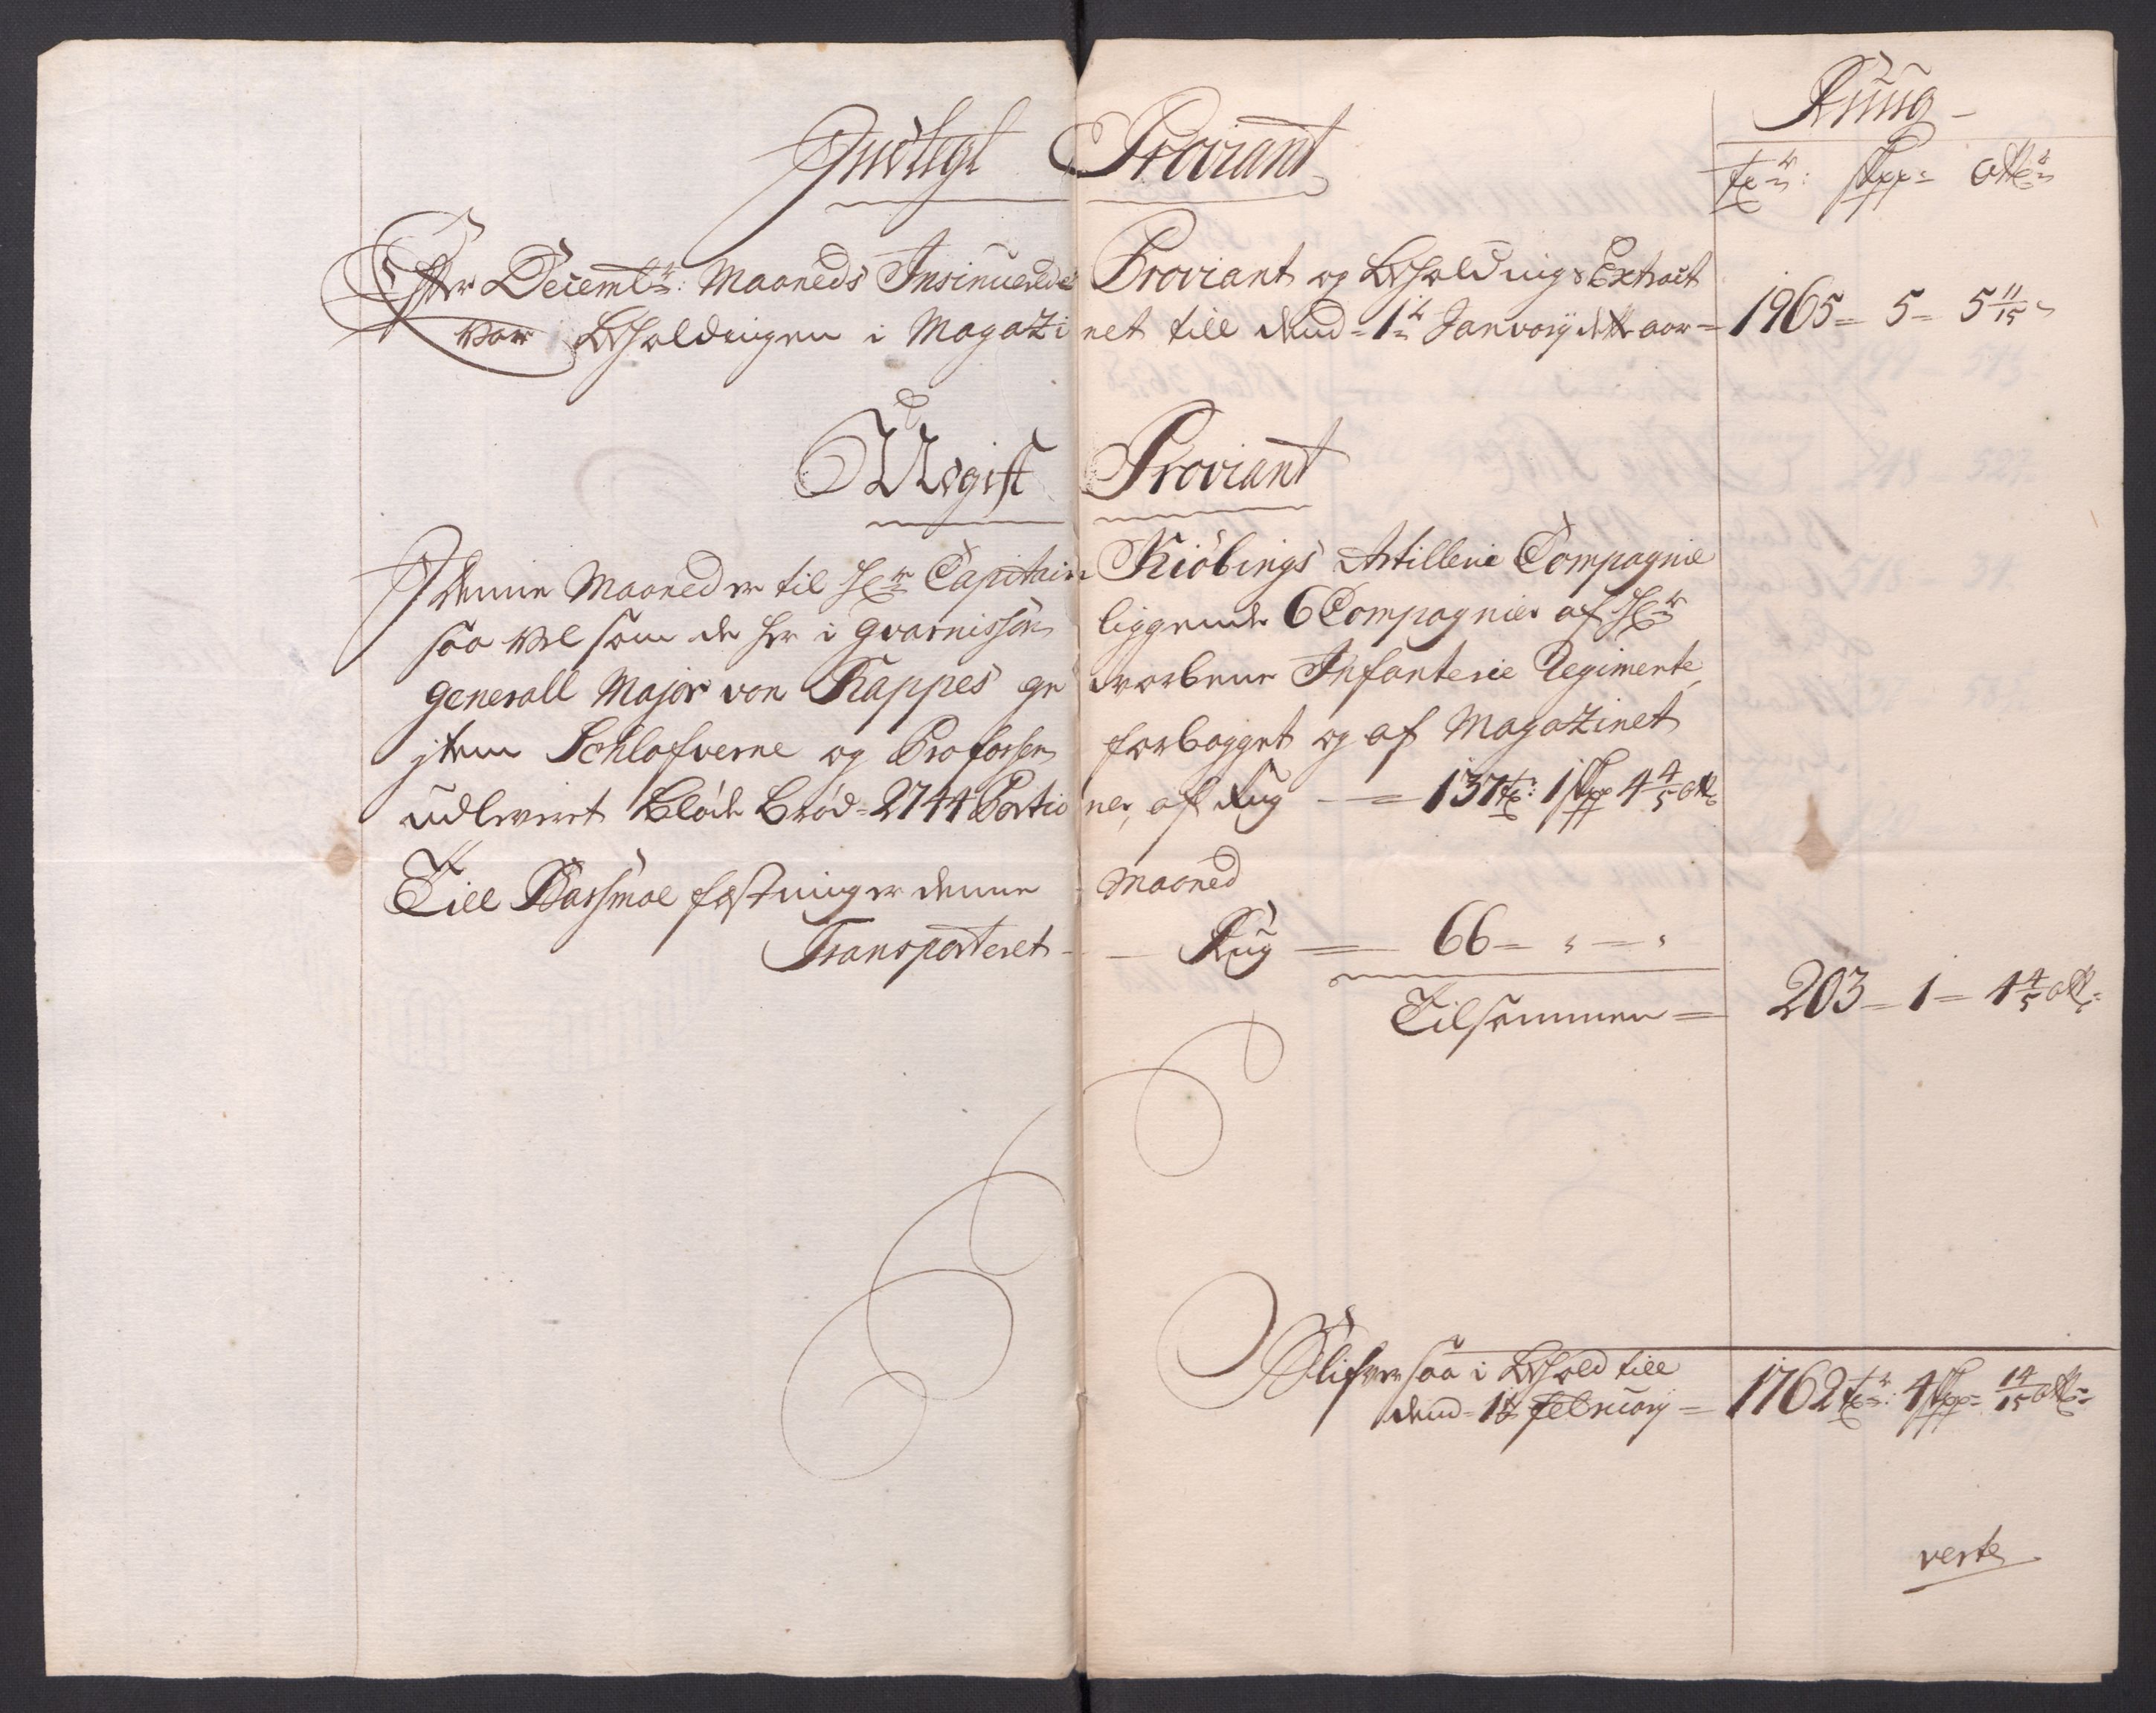 Rüüg
Indtegt Proviant
tr: skpr= ottr
Efter Decembr: Maaneds Insinuerede Proviant og beholdnings Extract
war beholdningen i Magazinet till dend 1te January dette aar = 1965= 5= 5 11/15
Udgift Proviant
I denne Maaned er til Hr: Capitain Kiöbings Artillerie Compagnie
saa vel som de her i gvarnisson liggende 6 Compagnier af Hr
generall Major von Kappes gevorbene Infanterie Regimente,
jtem Schlafverne og Profossen forbagget og af Magazinet
udleveret bløde brød= 2744 Portioner, af Rug — = 137 tr: 1 skp 4 4/5 ott
Till Basmoe festning er denne Maaned
Transporteret — Rug = 66= " = "
Tilsammen = 203= 1= 4 4/5 ott=
Blifver saa i behold till
dend= 1te February = 1762 tr: 4 skp= 14/15 ott=
verte